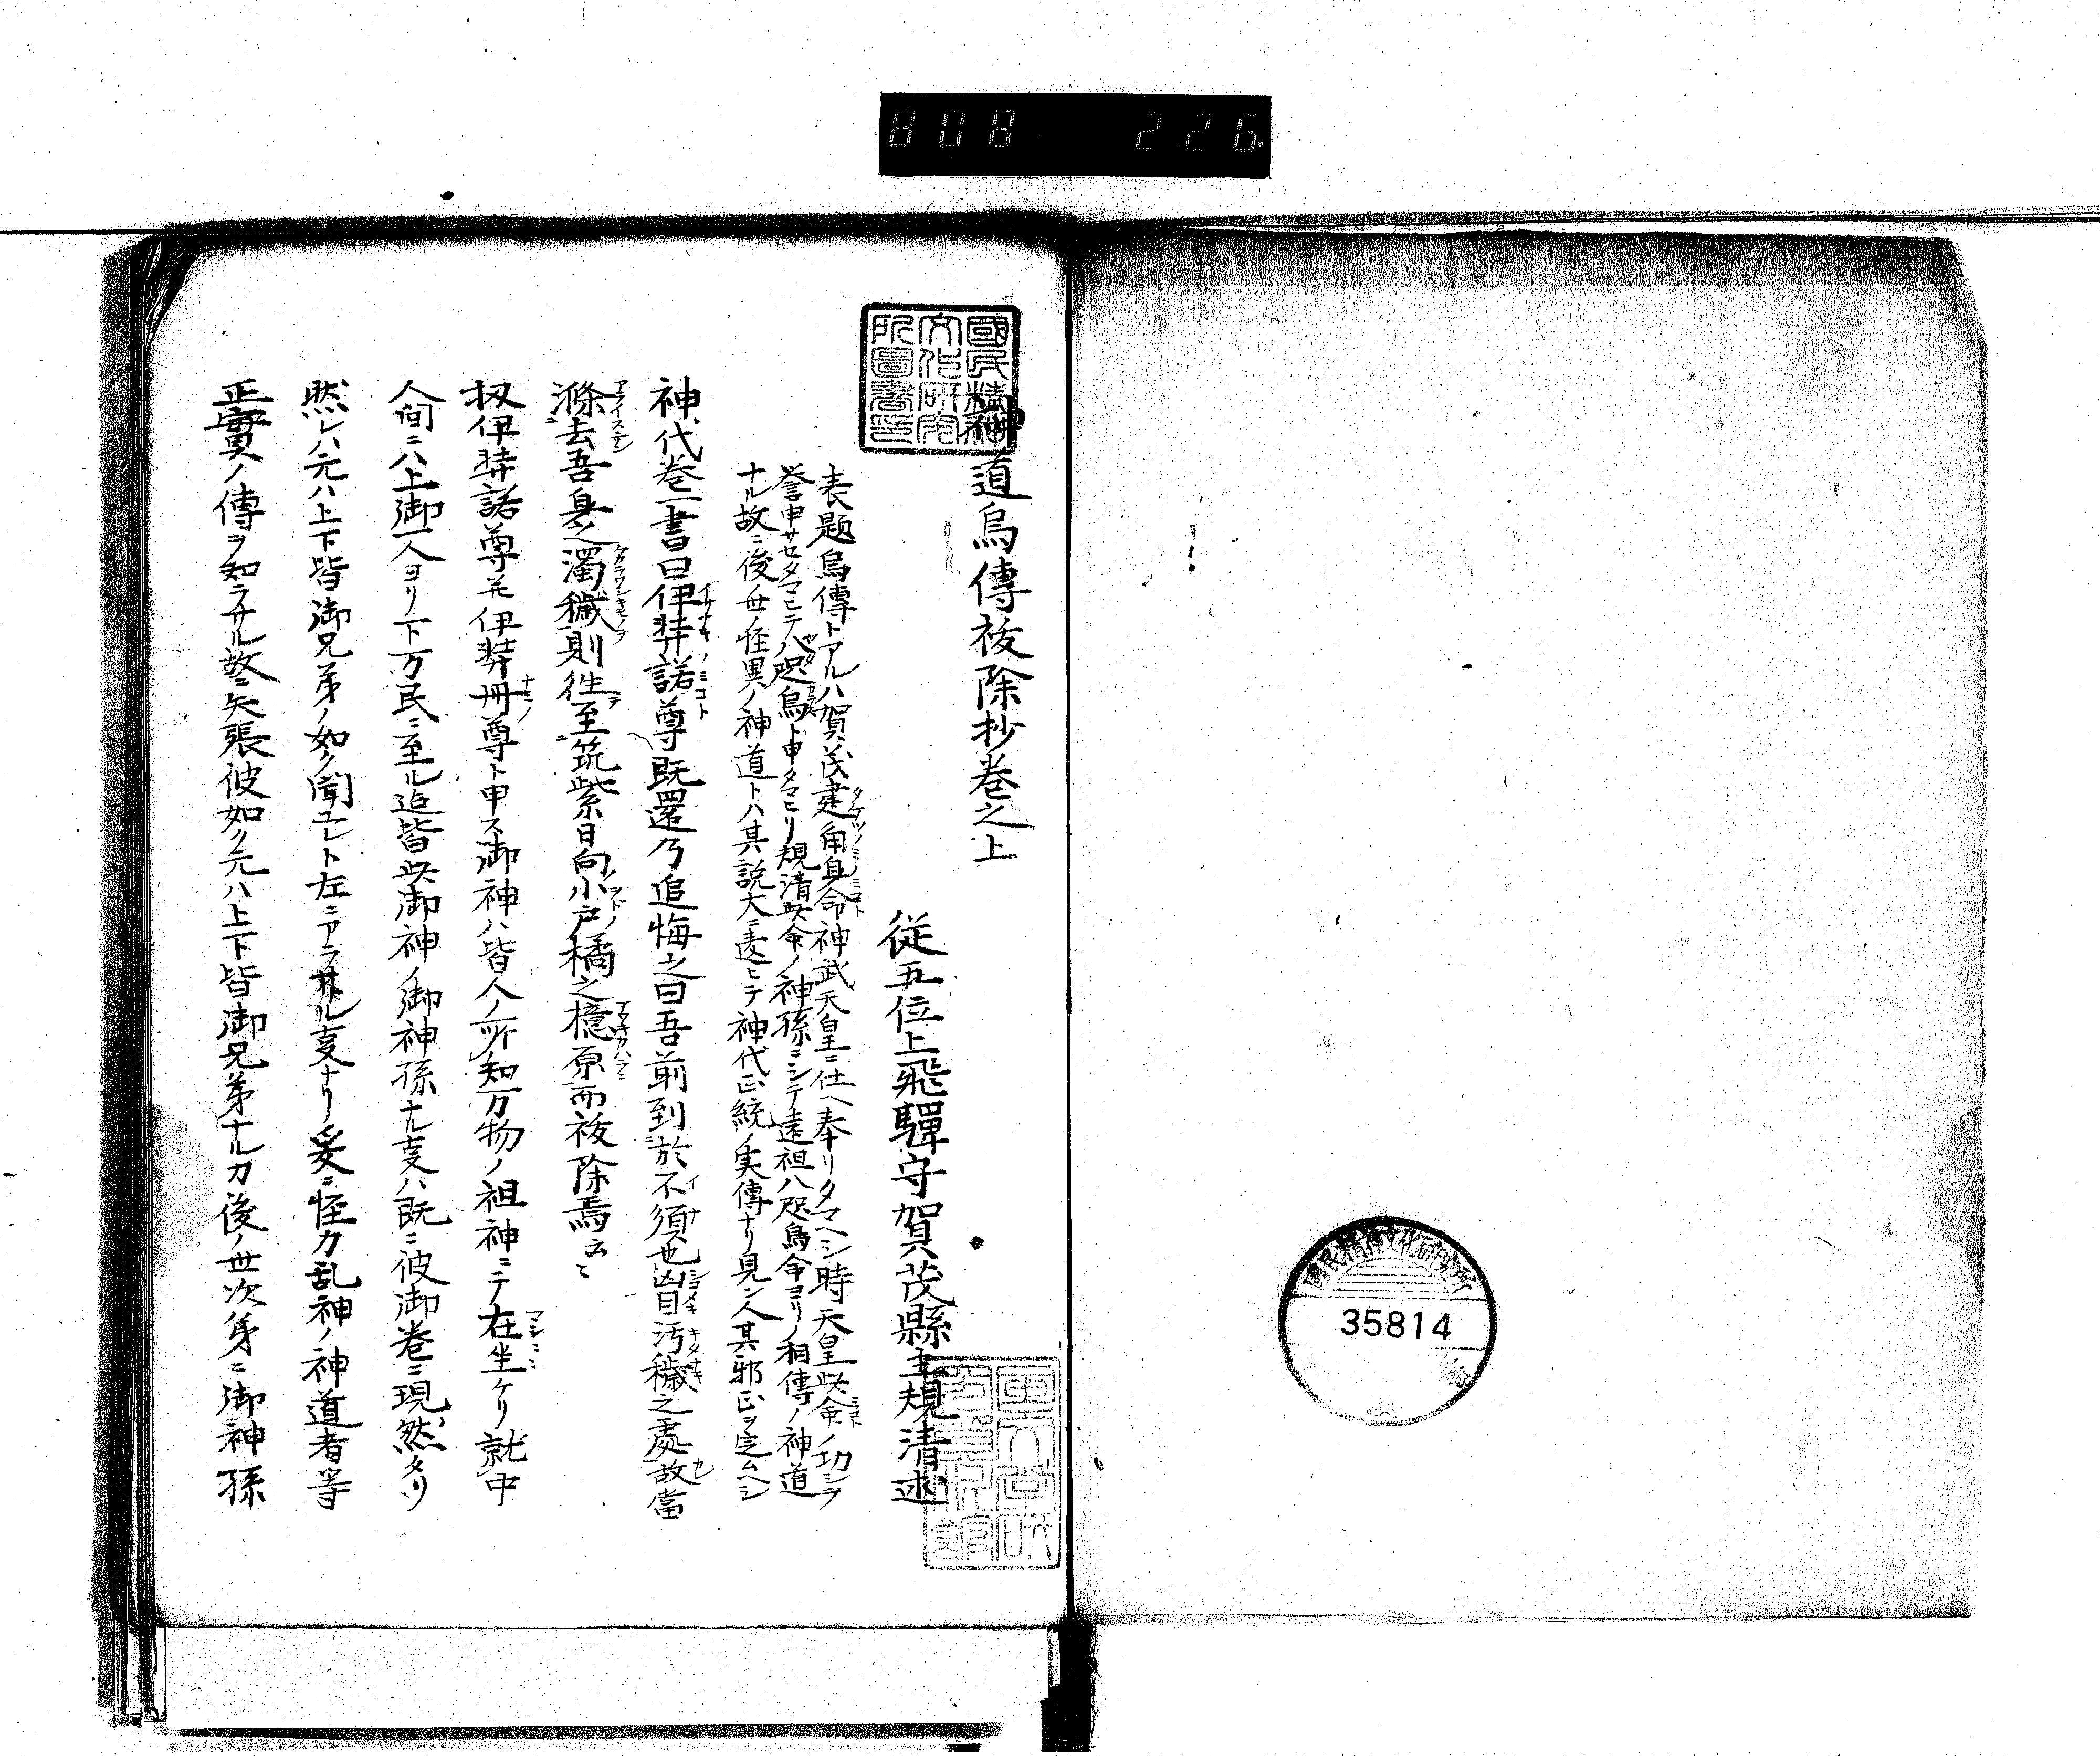 808 226
35814
國民精神文化研究所
國民精神文化研究所圖書印
神道烏傳祓除抄巻之上
従五位上飛驒守賀茂縣主規清述
表題烏傳トアルハ賀茂建角身命神武天皇ニ仕ヘ奉リタマヘシ時天皇此命ノ功シヲ
誉申サセタマヒテ八咫烏ト申タマヒリ規清此命ノ神孫ニシテ遠祖八咫烏命ヨリノ相傳ノ神道
ナル故ニ後ノ世ノ怪異ノ神道トハ其説大ニ違ヒテ神代正統ノ実傳ナリ見ン人其邪正ヲ定ムヘシ
神代巻一書曰伊弉諾尊既還乃追悔之曰吾前到於不須也凶目汚穢之處故當
滌去吾身之濁穢則往至筑紫日向小戸橘之檍原而祓除焉云〻
扨伊弉諾尊並伊弉冊尊ト申ス御神ハ皆人ノ所知万物ノ祖神ニテ在坐ケリ就中
人間ニハ上御一人ヨリ下万民ニ至ル迠皆此御神ノ御神孫ナル事ハ既ニ彼御巻ニ現然タリ
然レハ元ハ上下皆御兄弟ノ如ク聞エレト左ニアラサル事ナリ爰ニ怪力乱神ノ神道者等
正實ノ傳ヲ知ラサル故ニ矢張彼如ク元ハ上下皆御兄弟ナルカ後ノ世次第ニ御神孫